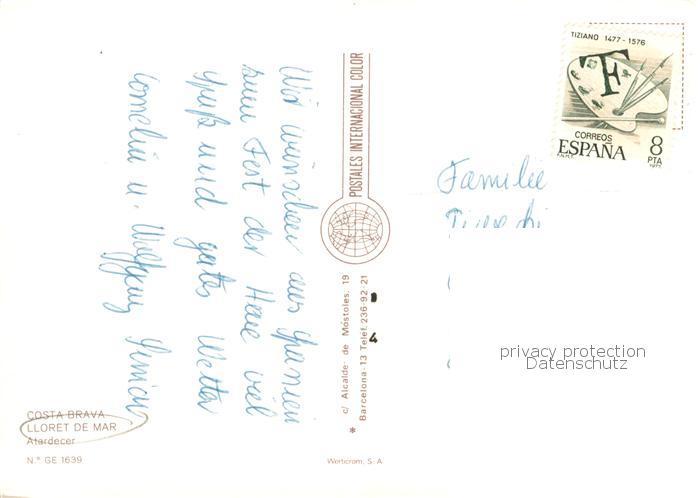 Wir wünschen aus Spanien
zum Fest der Hare viel
Spaß und gutes Wetter
Cornelia u. Wolfgang
POSTALES INTERNACIONAL COLOR
c/ Alcalde de Móstoles, 19
Barcelona-13 Teléf. 236-92-21
*
TIZIANO 1477 - 1576
CORREOS
ESPAÑA
8
PTA
F.N.M.T.
1977
Familie
privacy protection
Datenschutz
COSTA BRAVA
LLORET DE MAR
Atardecer
N.º GE 1639
Werticrom, S. A.